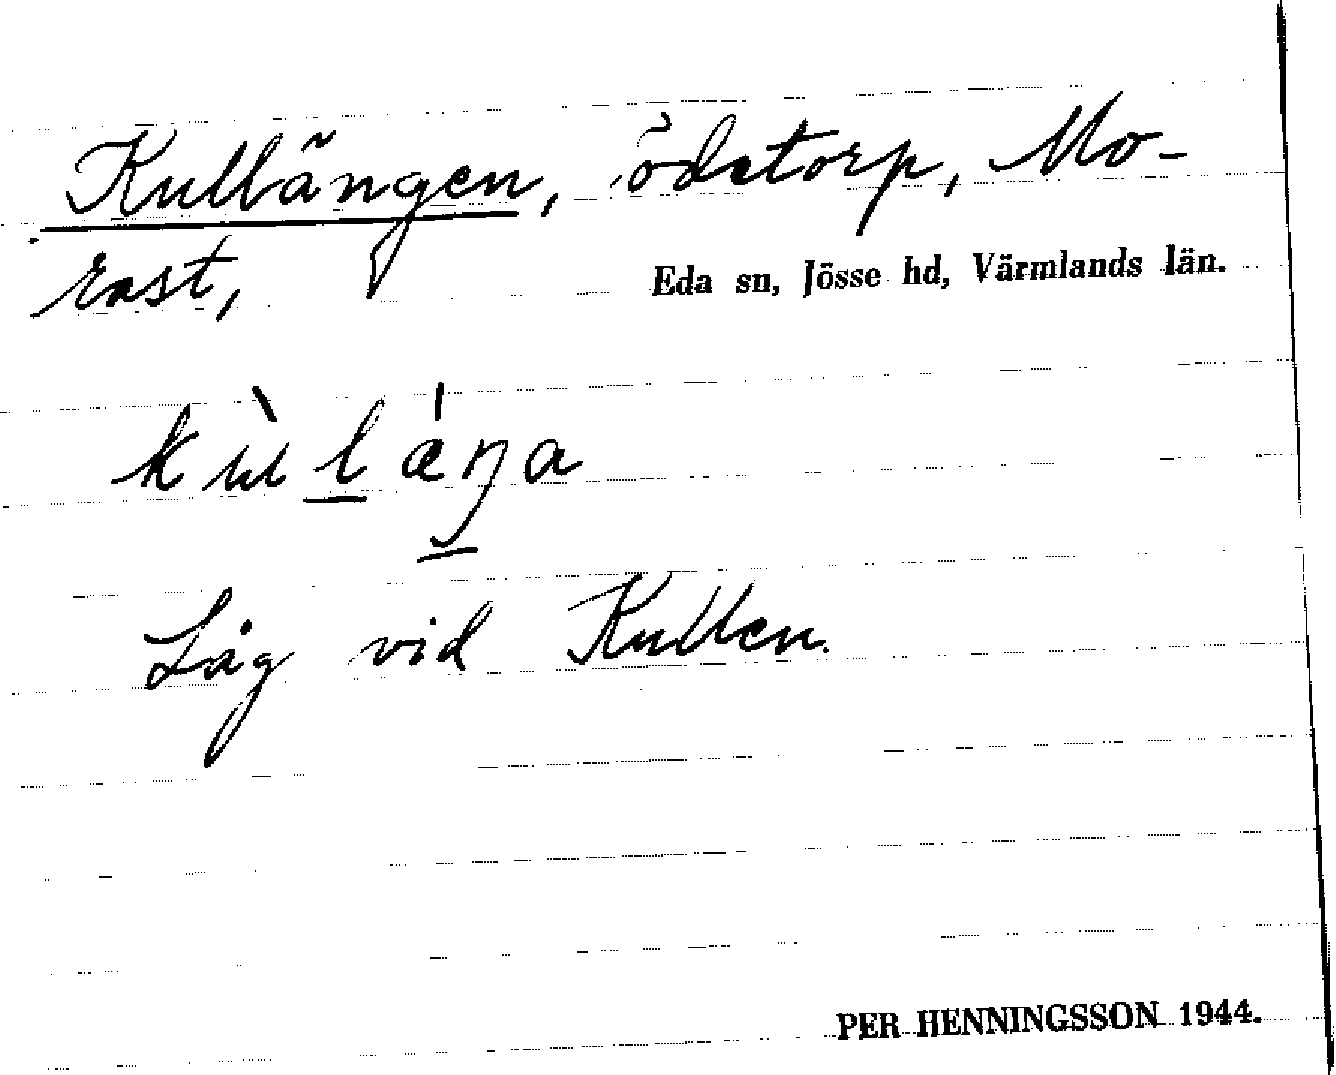 Kullängen, ödetorp, Mo-
rast,
Eda sn, Jösse hd, Värmlands län.
kùlǽŋa
Låg vid Kullen.
PER HENNINGSSON 1944.